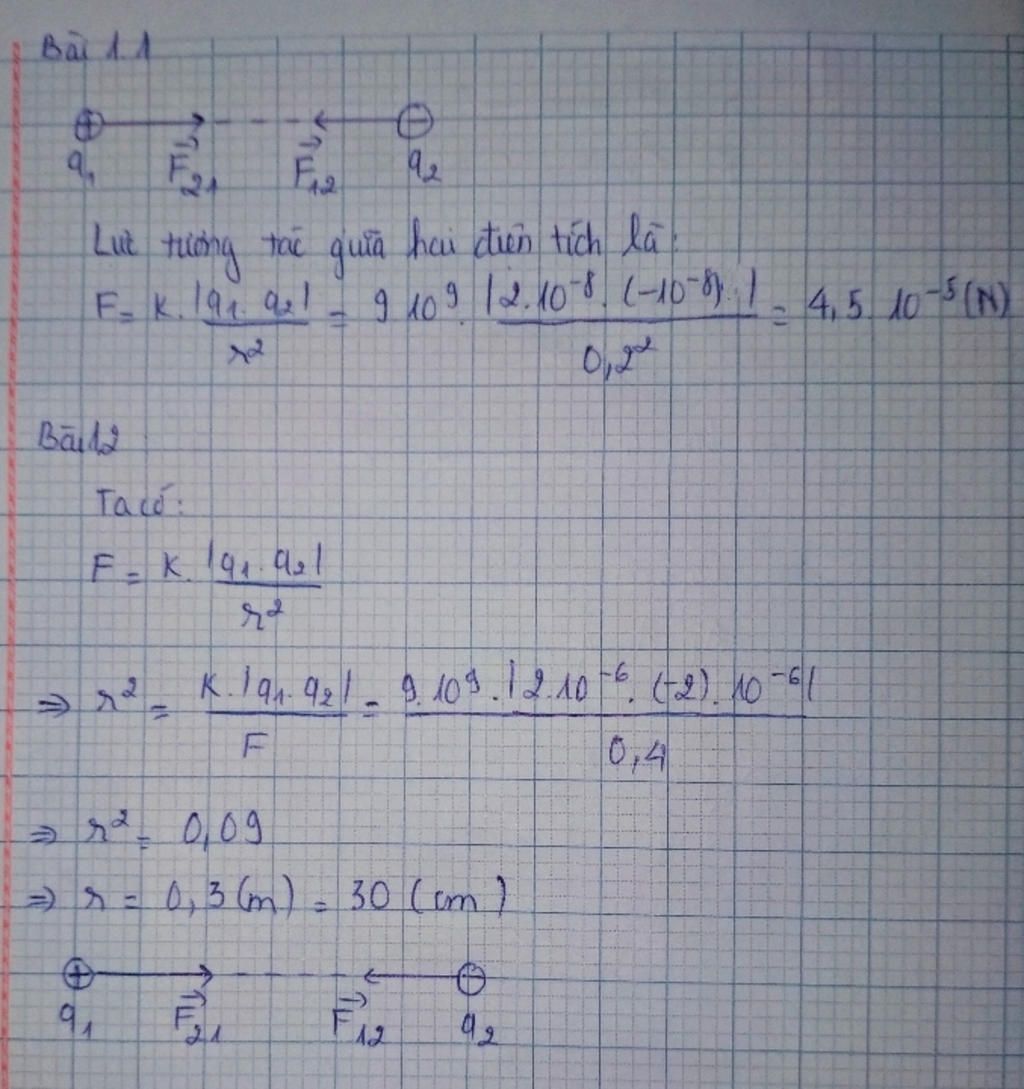 Bài 1.1
q₁ F₂₁ F₁₂ q₂
Lực tương tác giữa hai điện tích là:
F = k. |q₁. q₂| / r² = 9 10⁹. |2.10⁻⁸. (-10⁻⁸). | / 0,2² = 4,5. 10⁻⁵ (N)
Bài 1.2
Ta có:
F = k. |q₁. q₂| / r²
⇒ r² = k. |q₁. q₂| / F = 9.10⁹. |2.10⁻⁶. (-2). 10⁻⁶| / 0,4
⇒ r² = 0,09
⇒ r = 0,3 (m) = 30 (cm)
q₁ F₂₁ F₁₂ q₂